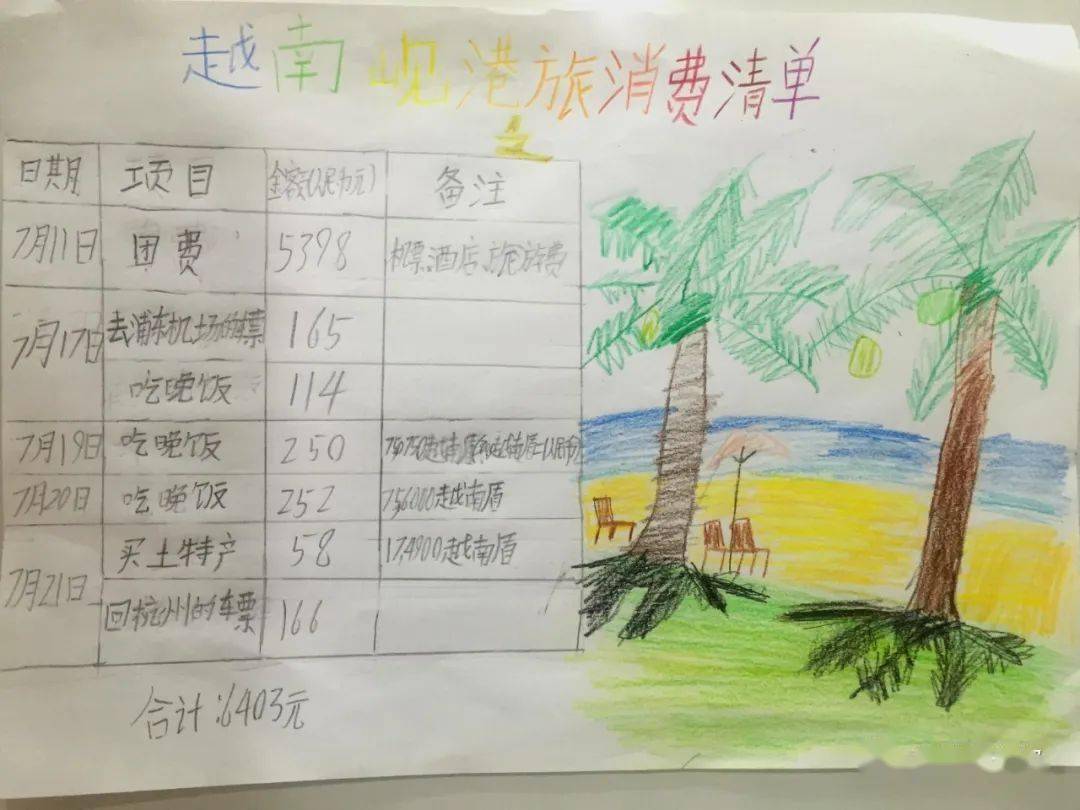 越南岘港旅消费清单
之
日期 项目 金额(人民币元) 备注
7月11日 团费 5398 机票、酒店、旅游费
7月17日 去浦东机场的车票 165
吃晚饭 114
7月19日 吃晚饭 250
7月20日 吃晚饭 252 756000越南盾
7月21日 买土特产 58 17,4900越南盾
回杭州的车票 166
合计:6403元